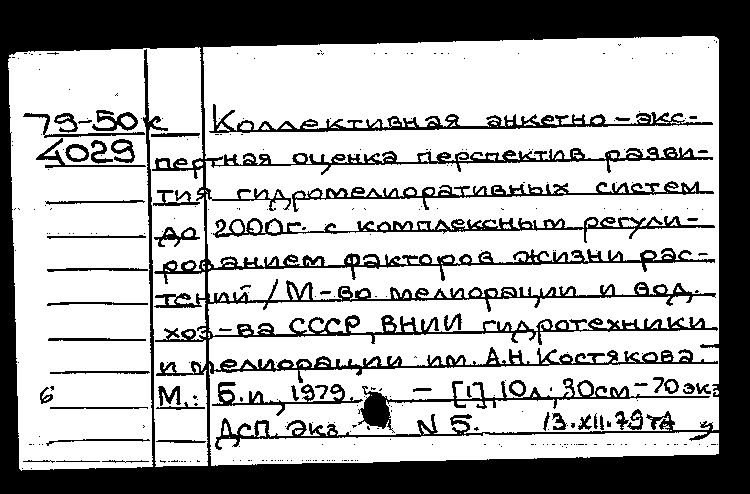 79-50к Коллективная анкетно-экс-
4029 пертная оценка перспектив разви-
тия гидромелиоративных систем
до 2000г. с комплексным регули-
рованием факторов жизни рас-
тений / М-во мелиорации и вод.
хоз-ва СССР, ВНИИ гидротехники
и мелиорации им. А.Н. Костякова. -
б М.: Б.и., 1979. - [1], 10л.; 30см - 70экз
ДСП. Экз. N 5. 13.XII.79